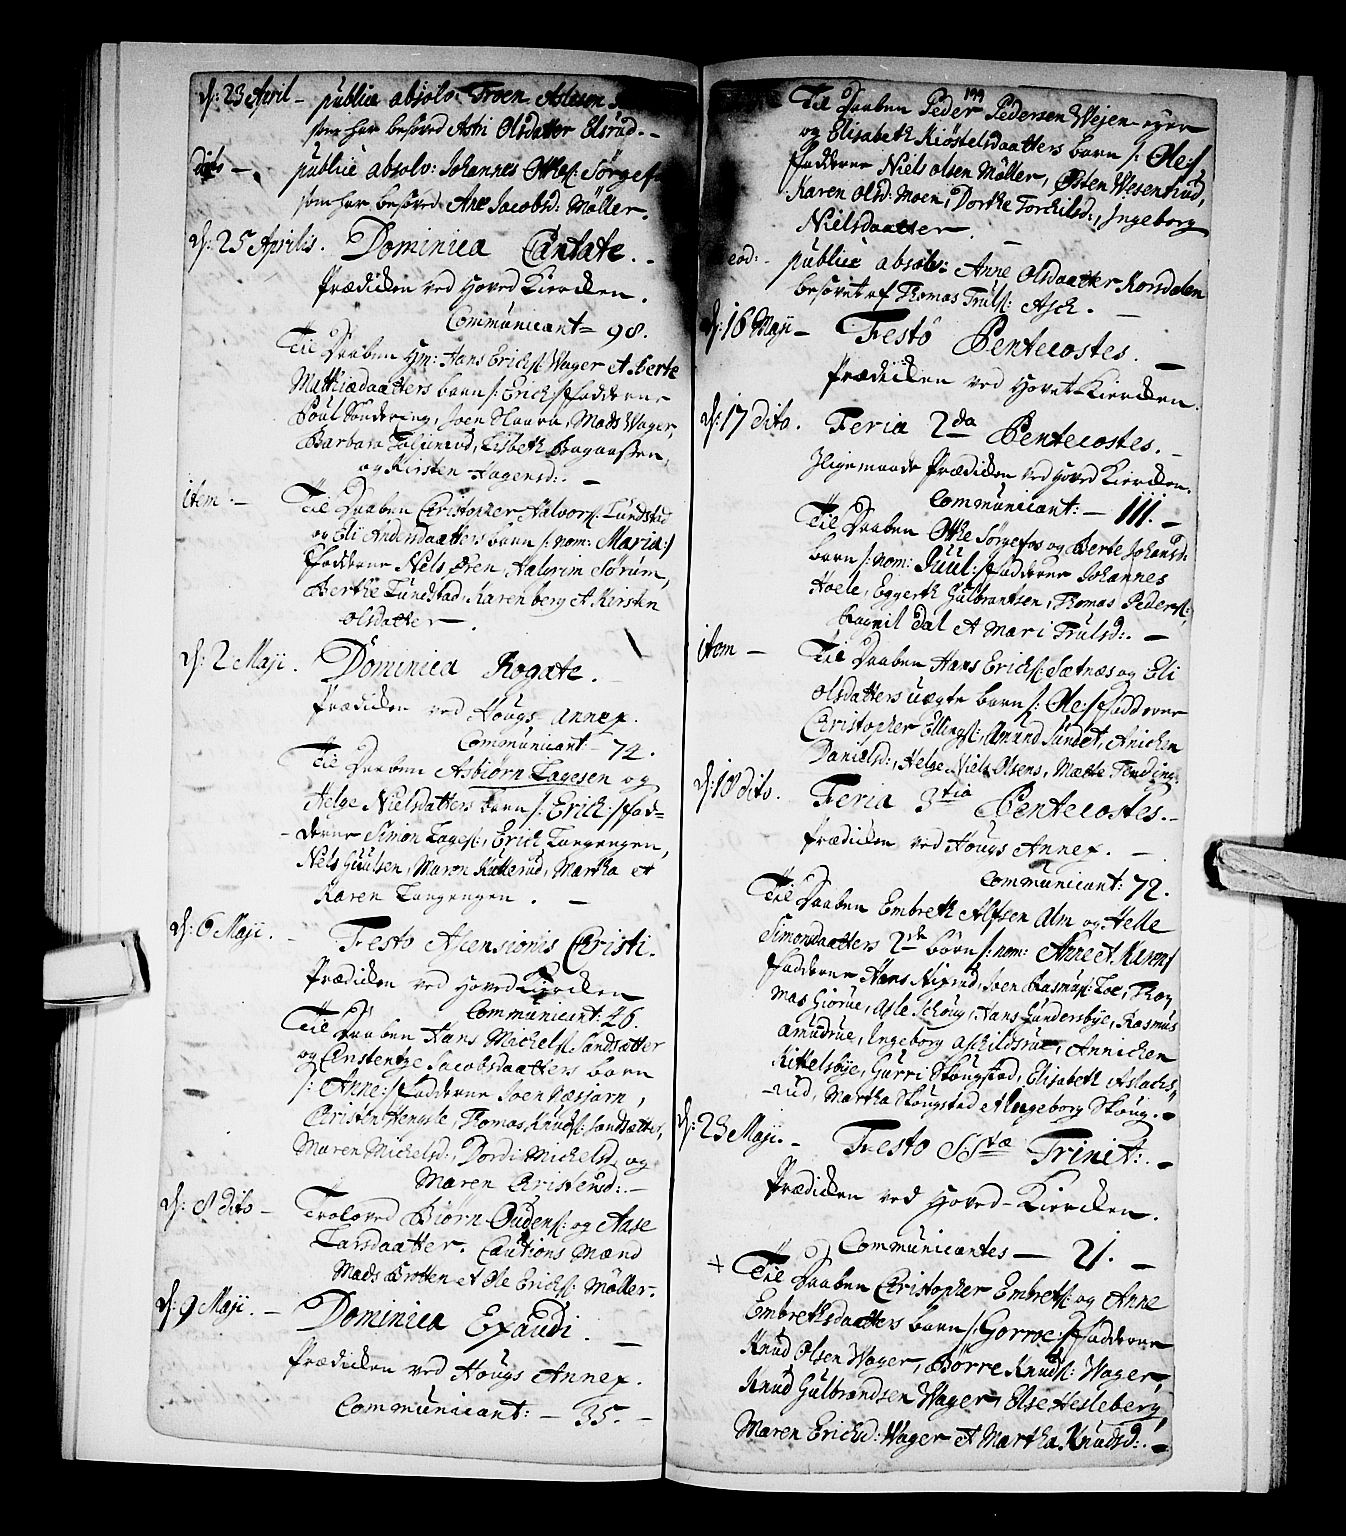 d: 23 April – publicè absolv: Troen Aslesen
som har besoved Astri Olsdatter Elsrud. –
dito – publicè absolv: Johannes Othes: Sørgef
som har besoved Ane Jacobsd: Møller.
d: 25 Aprilis. Dominica Cantate. –
Prædicken ved Hoved Kiercken.
Communicant = 98.
Til Daaben Hans Erichs: Wager et Berte
Matthiædaatters barn /: Erich :/ Fadderne
Poul Sündering, Joen Haara, Mads Wager,
Barbara, Lisbeth Braga
og Kirsten Hagensd: –
item – Til Daaben Christopher Halvors: Lundstad
og Eli Andersdaatters barn /: nom: Maria :/
Fadderne Nels Øren, Halgrim Sørum,
Berthe Lundstad, Karen berg et Kersten
Olsdatter –
d: 2 Maji. Dominica Rogate. –
Prædicken ved Hougs Annex.
Communicant – 72.
Til Daaben Asbiørn Tagesen og
Helge Nielsdatters barn /: Erich :/ Fad=
derne Simon Tages:, Erich Langengen,
Nels Guulsen, Maren Rutterud, Martha et
Karen Langengen. –
d: 6 Maji. – Festo Ascensionis Christi.
Prædicken ved Hoved Kiercken
Communicant: 46.
Til Daaben Hans Michels: Sandsætter
og Anstentze Jacobsdaatters barn
/: Anne :/ Fadderne Joen Næssjarn,
Christen Hengsle, Thomas Knuds: Sandsætter,
Maren Michelsd:, Dordi Michelsd og
Maren Christensd: –
d: 8 dito – Trolovved Biørn Oudens: og Aase
Larsdaatter. Cautions Mænd
Mads Brotten et Ole Erichs: Møller.
d: 9 Maji. – Dominica Exaudi. –
Prædicken ved Hougs Annex.
Communicant: – 35. –
199
Til Daaben Peder Pedersen Wejen
og Elisabeth Kiøstelsdaatters barn /: Ole :/
Fadderne Niels Olsen Møller, Østen Wesenrud,
Karen Olsd: Moen, Dorthe Torchilsd:, Ingeborg
Nielsdaatter. –
eod: – publicè absolv: Anne Olsdaatter Korsdalen
besovet af Thomas Truls: Asch. –
d: 16 Maji – Festo Pentecostes. –
Prædicken ved Hovet-Kiercken.
d: 17 dito. Feria 2da Pentecostes. –
Ligemaade Prædicken ved Hoved Kiercken.
Communicant: – 111. –
Til Daaben Othe Sørgefos og Berte Johansd:
barn /: nom: Juul :/ Fadderne Johannes
Hoele, Eggerth Gulbrantsen, Thomas Peders:,
Ragnil Dal et Mari Trulsd: –
item – Til Daaben Hans Erichs: Sætnæs og Eli
Olsdatters uægte barn /: Ole :/ Fadderne
Christopher Ellings:, Amund Sandet, Anichen
Danielsd:, Helge Niels Olsens, Mætte Tending.
d: 18 dito. Feria 3tia Pentecostes. –
Prædicken ved Hougs Annex. –
Communicant: 72.
Til Daaben Embreth Alfsen Alm og Helle
Simonsdaatters 2de børn /: nom: Anne et Karen :/
Fadderne Hans Nixrud, Joen Rasmus: Loe, Tho,,
mas Giørue, Asle Schoug, Hans Gundersbye, Rasmus
Amudrue, Ingeborg Aschildsrue, Annichen
Kittelsbye, Gurri Skougstad, Elisabeth Aslachs,,
rud, Martha Skougstad et Ingeborg Skoug. –
d: 23 Maji. – Festo SStæ Trinit: –
Prædicken ved Hoved-Kiercken.
Communicantes – 21. –
+ Til Daaben Christopher Embrets: og Anne
Embrethsdaatters barn /: Gorroe :/ Fadderne
Knud Olsen Wager, Børre Knuds: Wager,
Knud Gulbrandsen Wager, Else Hesleberg,
Maren Erichsd: Wager et Martha Knudsd: –